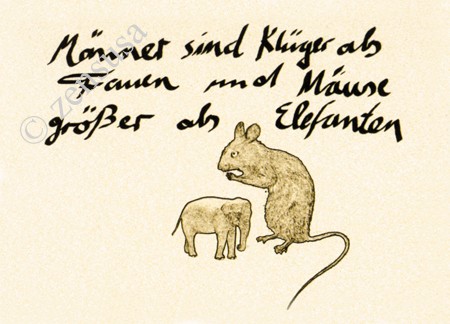 Männer sind Klüger als
Frauen und Mäuse
größer als Elefanten
© zensusa